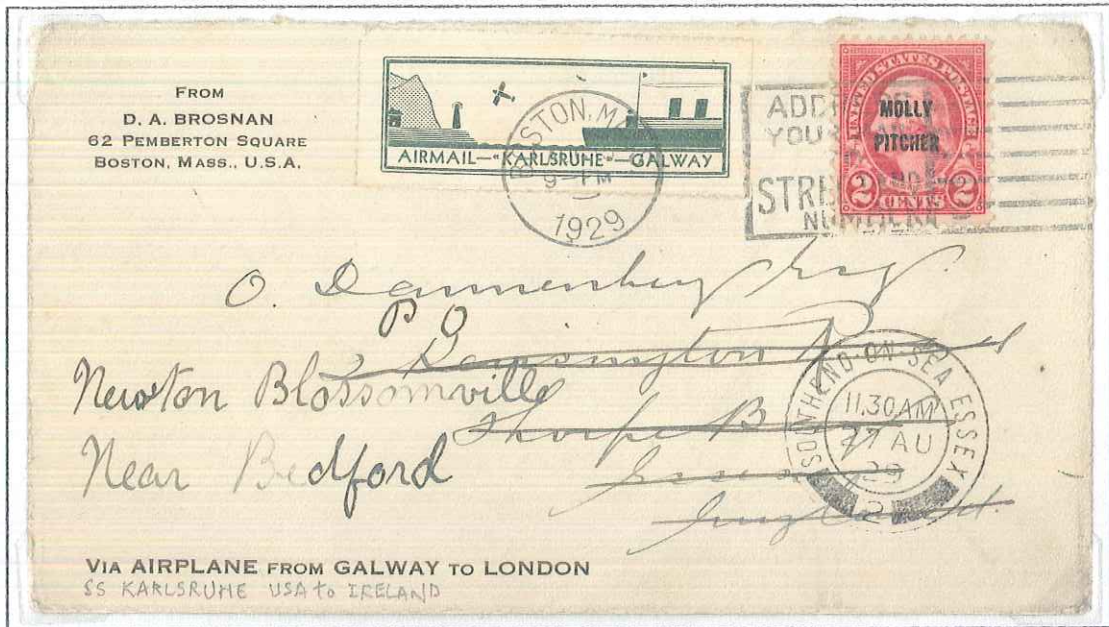 FROM
D. A. BROSNAN
62 PEMBERTON SQUARE
BOSTON, MASS., U.S.A.
AIRMAIL—"KARLSRUHE"—GALWAY
BOSTON, M
9-PM
1929
YOUR
STRE
UNITED STATES POSTAGE
MOLLY
PITCHER
2 CENTS 2
O. Dannenberg Esq.
P O
Kensington Road
Newton Blossomville
Thorpe B
Near Bedford
Essex
England.
SOUTHEND-ON-SEA ESSEX
11.30 AM
27 AU
29
2
VIA AIRPLANE FROM GALWAY TO LONDON
SS KARLSRUHE USA to IRELAND